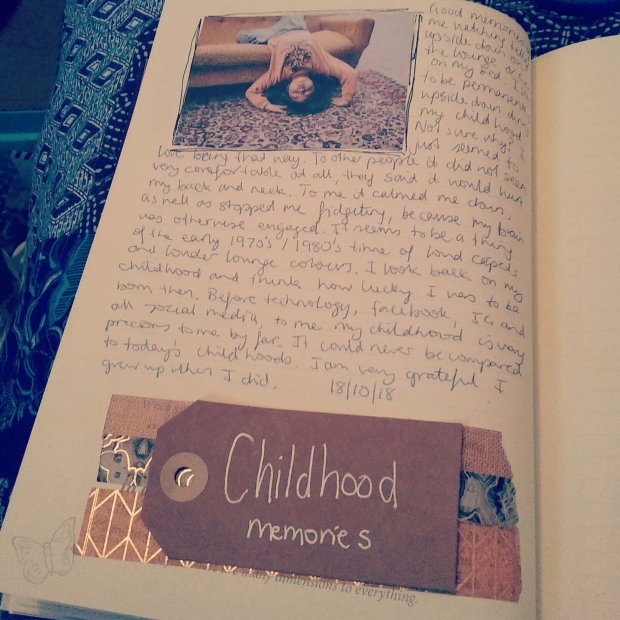 Good memories
me watching telly
upside down on
the lounge or even
on my bed. I
to be permanently
upside down during
my childhood.
Not sure why? I
just seemed to
like being that way. To other people it did not seem
very comfortable at all, they said it would hurt
my back and neck. To me it calmed me down,
as well as stopped me fidgeting, because my brain
was otherwise engaged. It seems to be a thing
of the early 1970's / 1980's time of loud carpets
and louder lounge colours. I look back on my
childhood and think how lucky I was to be
born then. Before technology, facebook, IG and
all social media, to me my childhood is very
precious to me by far. It could never be compared
to today's childhoods. I am very grateful I
grew up when I did. 18/10/18
Childhood
memories
many dimensions to everything.